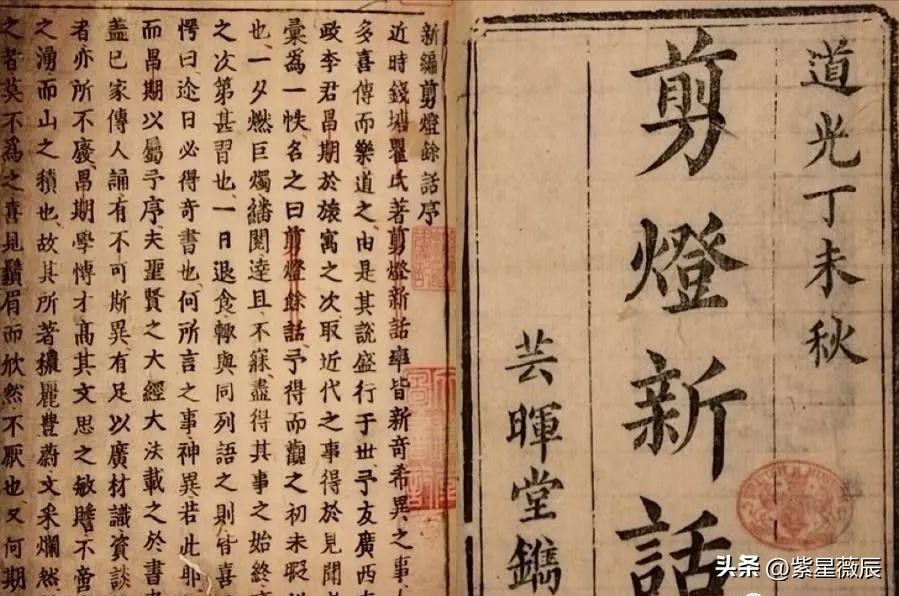 道光丁未秋
剪燈新話
芸暉堂鐫
新編剪燈餘話序
近時錢塘瞿氏著剪燈新話率皆新奇希異之事
多喜傳而樂道之由是其說盛行于世予友廣西
政李君昌期於旅寓之次取近代之事得於見聞
彙爲一帙名之曰剪燈餘話予得而觀之初未暇
也一夕燃巨燭繙閱達旦不寐盡得其事之始終
之次第甚習也一日退食輒與同列語之則皆喜
愕曰迩日必得奇書也何所言之事神異若此耶
而昌期以屬予序夫聖賢之大經大法載之於書
蓋已家傳人誦有不可斯異有足以廣材識資談
者亦所不廢昌期學博才高其文思之敏贍不啻
之湧而山之積也故其所著穠麗豐蔚文采爛然
之者莫不爲之喜見鬚眉而欣然不厭也又何期
头条 @紫星薇辰